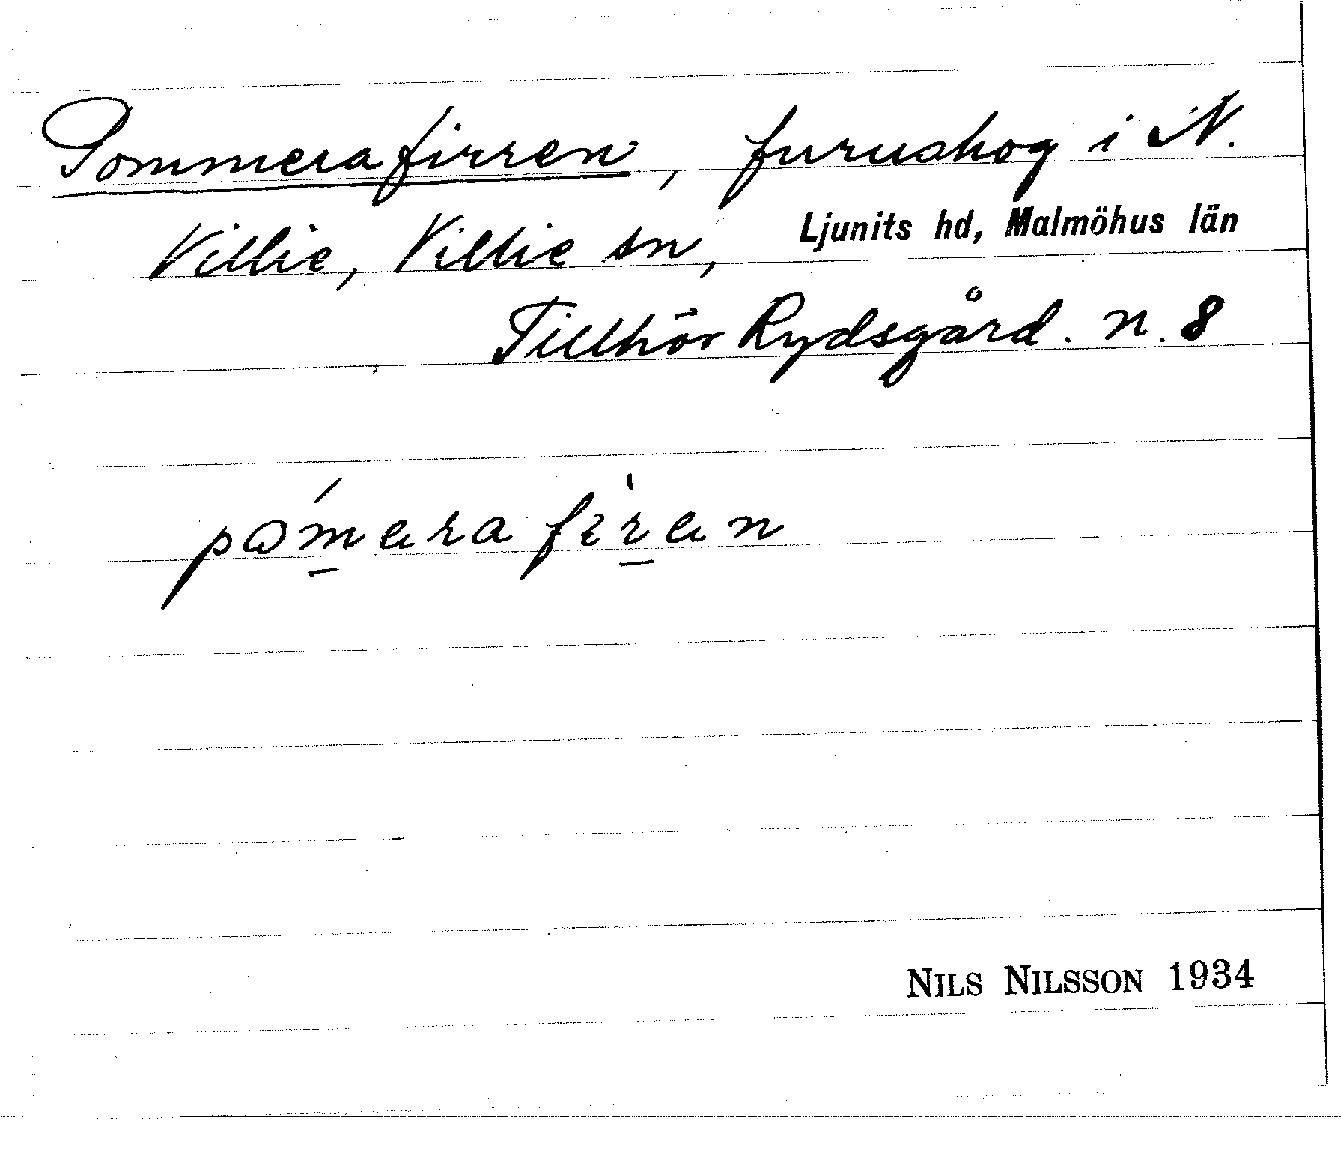 Pommerafirren, furuskog i N.
Villie, Villie sn, Ljunits hd, Malmöhus län
Tillhör Rydsgård. N. 8
pamarafiran
NILS NILSSON 1934